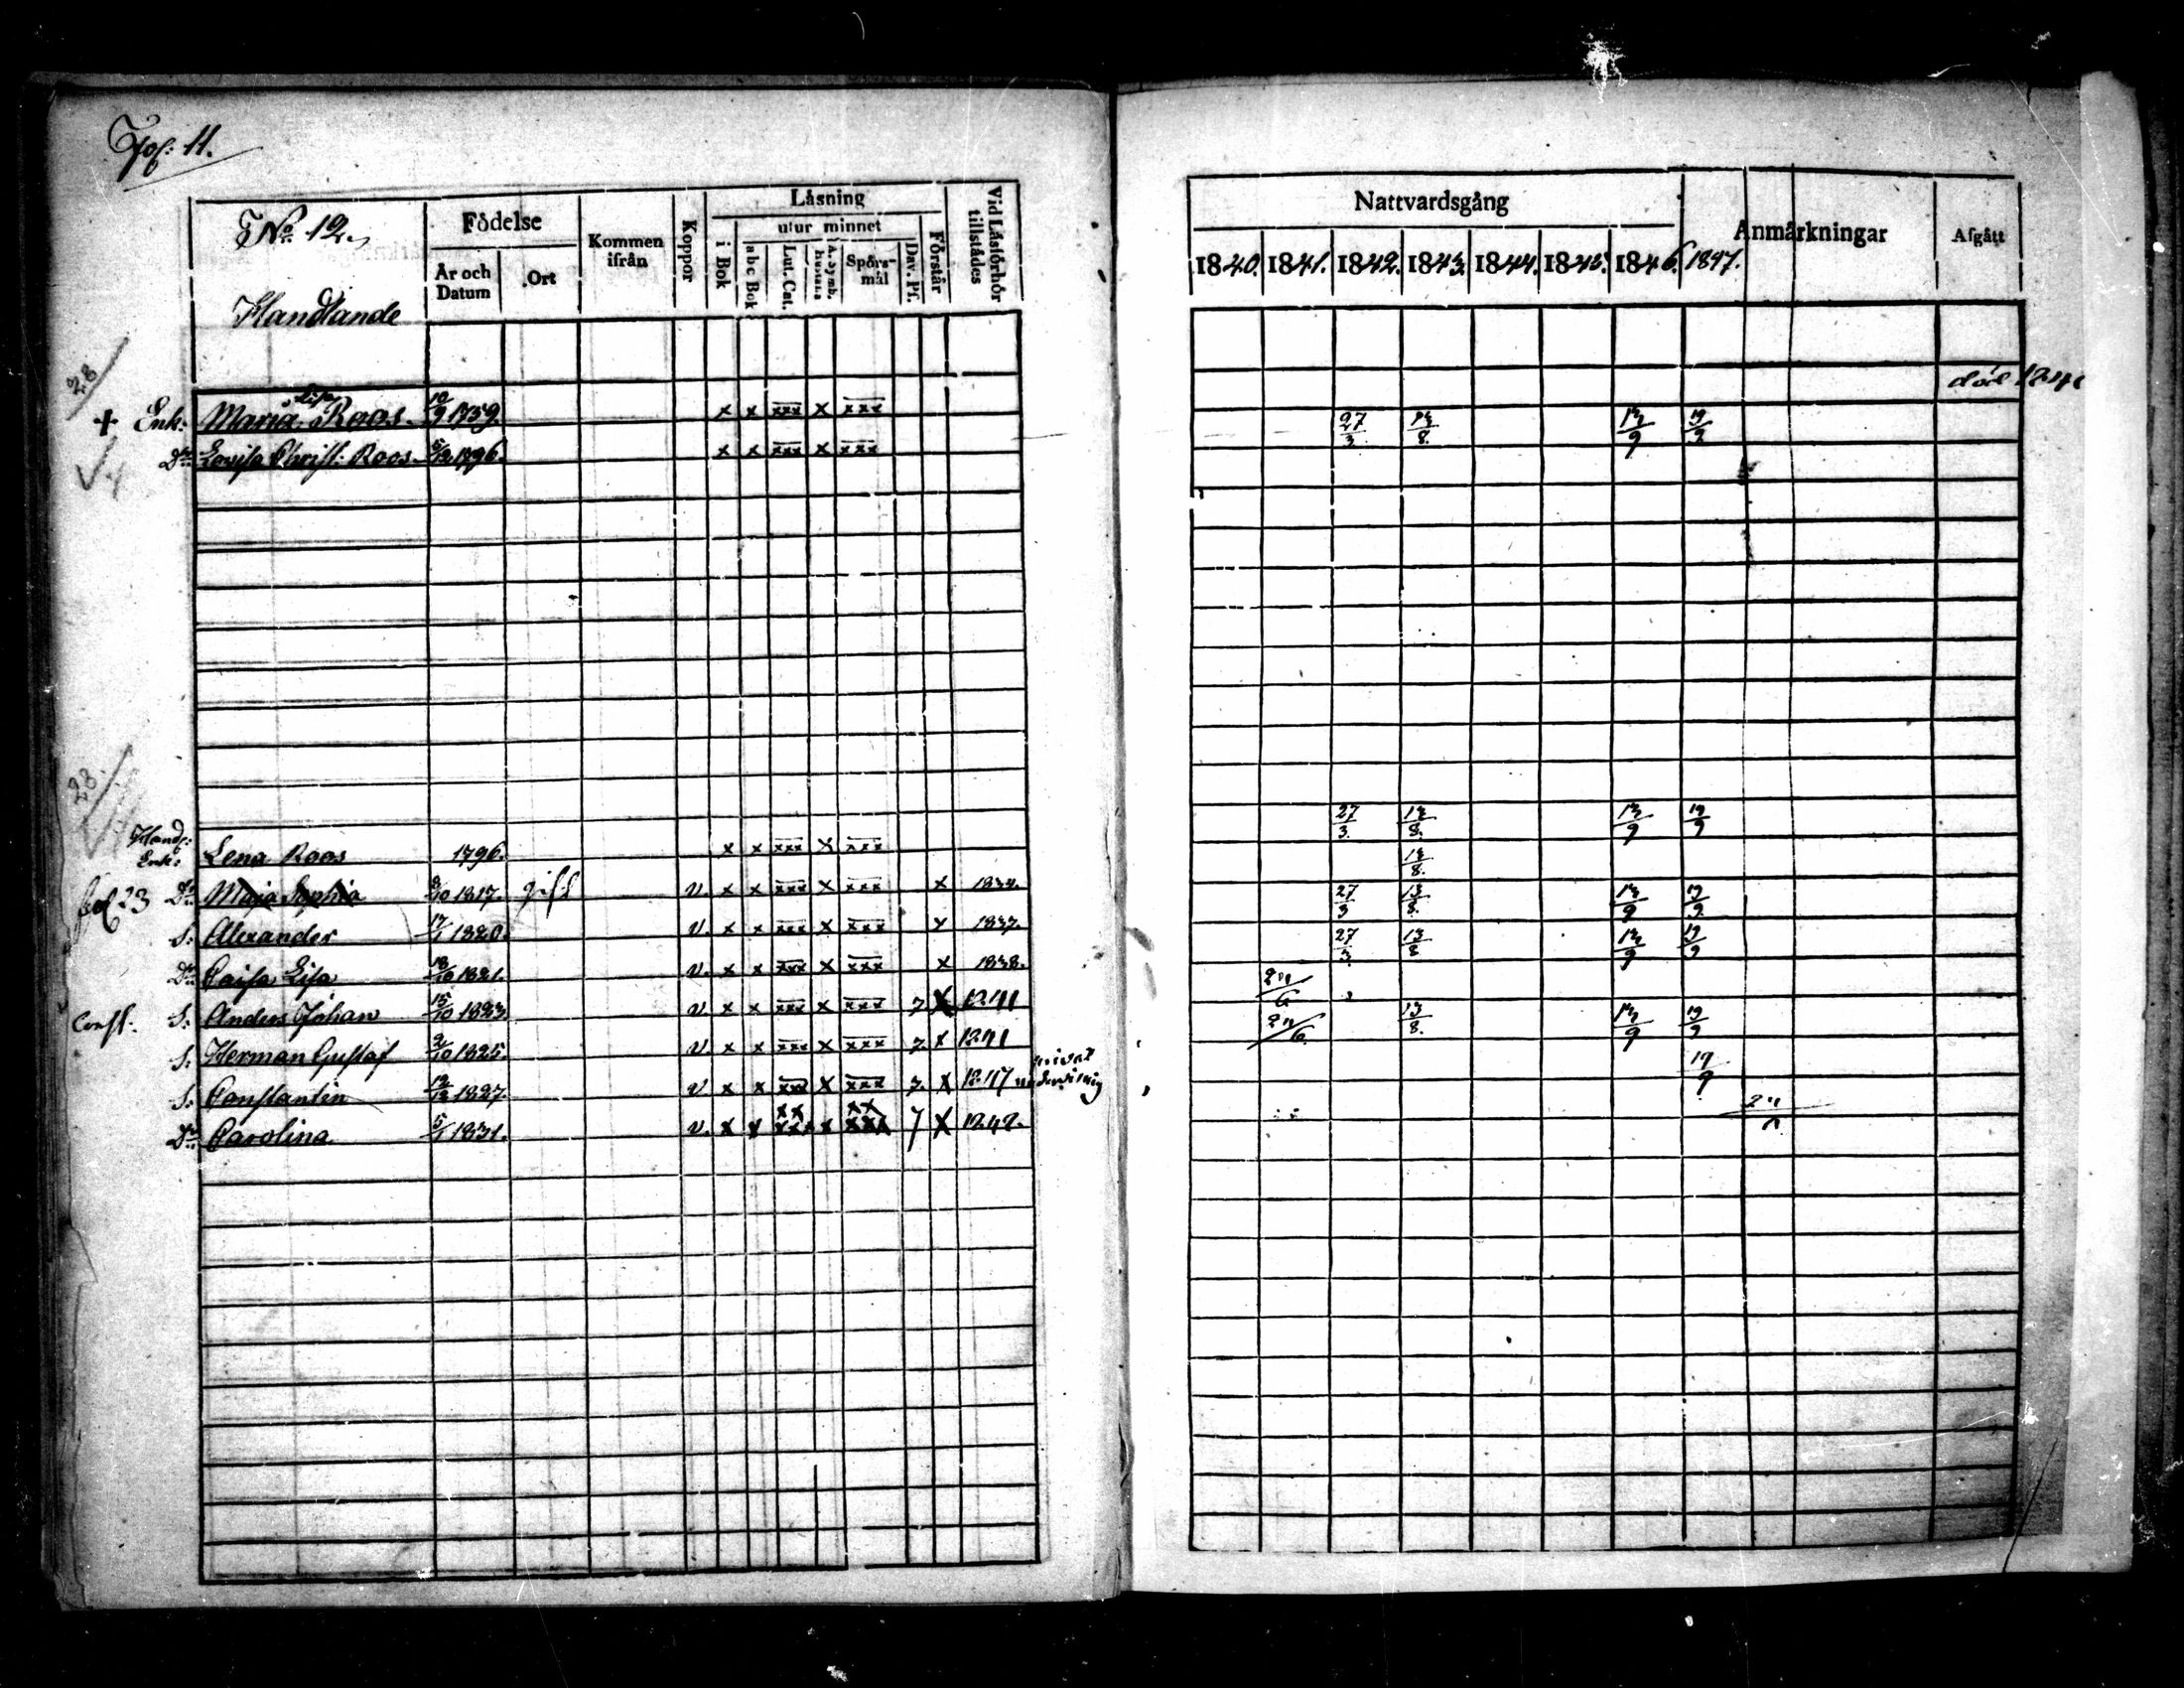 Fol: 11.
No. 12.
Handlande
Födelse
År och Datum
Ort
Kommen ifrån
Koppor
Läsning
utur minnet
i Bok
abc Bok
Lut. Cat.
A. Symb.
Hustafla
Spörsmål
Dav. Ps.
Förstår
Vid Läsförhör tillstädes
28
+ Enk: Maria Lisa Roos. 10/9 1759. x x xxx x xxx
Dr. Lovisa Christ: Roos 5/12 1796. x x xxx x xxx
28
Handl: Enk: Lena Roos 1796. x x xxx x xxx
fol 23 Dr. Maja Sophia 8/10 1817. gift v. x x xxx x xxx x 1834.
S: Alexander 17/1 1820. v. x x xxx x xxx x 1837.
Dr. Cajsa Lisa 18/10 1821. v. x x xxx x xxx x 1838.
S: Anders Johan 15/10 1823. v. x x xxx x xxx 7 x 1841
S: Herman Gustaf 2/10 1825. v. x x xxx x xxx 7 x 1841
S: Constantin 12/12 1827. v. x x xxx x xxx 7. x
Dr. Carolina 5/1 1831. v. x x xx xxx x xx xxx 7 x 1842.
Nattvardsgång
Anmärkningar
Afgått
1840. 1841. 1842. 1843. 1844. 1845. 1846. 1847.
död
27/3 13/8. 13/9 19/9
27/3. 13/8. 13/9 19/9
13/8.
27/3 13/8. 13/9 19/9
27/3. 13/8 13/9 19/9
13/8. 13/9 19/9
19/9